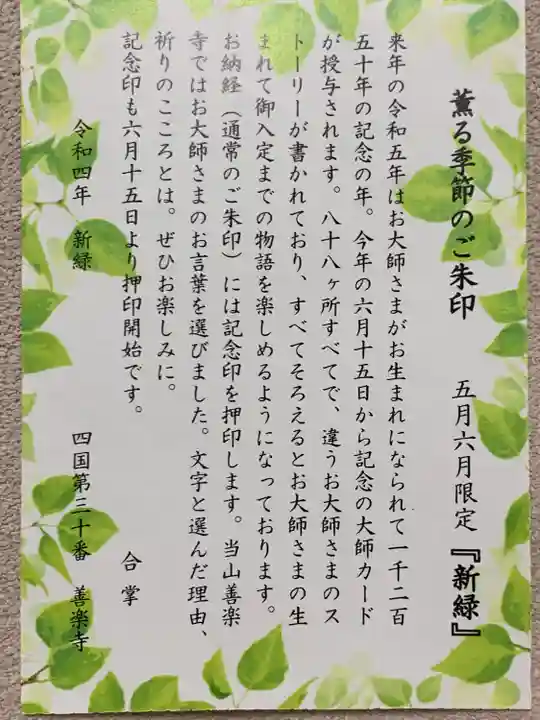 薫る季節のご朱印　五月六月限定『新緑』
来年の令和五年はお大師さまがお生まれになられて一千二百
五十年の記念の年。今年の六月十五日から記念の大師カード
が授与されます。八十八ヶ所すべてで、違うお大師さまのス
トーリーが書かれており、すべてそろえるとお大師さまの生
まれて御入定までの物語を楽しめるようになっております。
お納経（通常のご朱印）には記念印を押印します。当山善楽
寺ではお大師さまのお言葉を選びました。文字と選んだ理由、
祈りのこころとは。ぜひお楽しみに。
記念印も六月十五日より押印開始です。
合掌
令和四年　新緑
四国第三十番　善楽寺